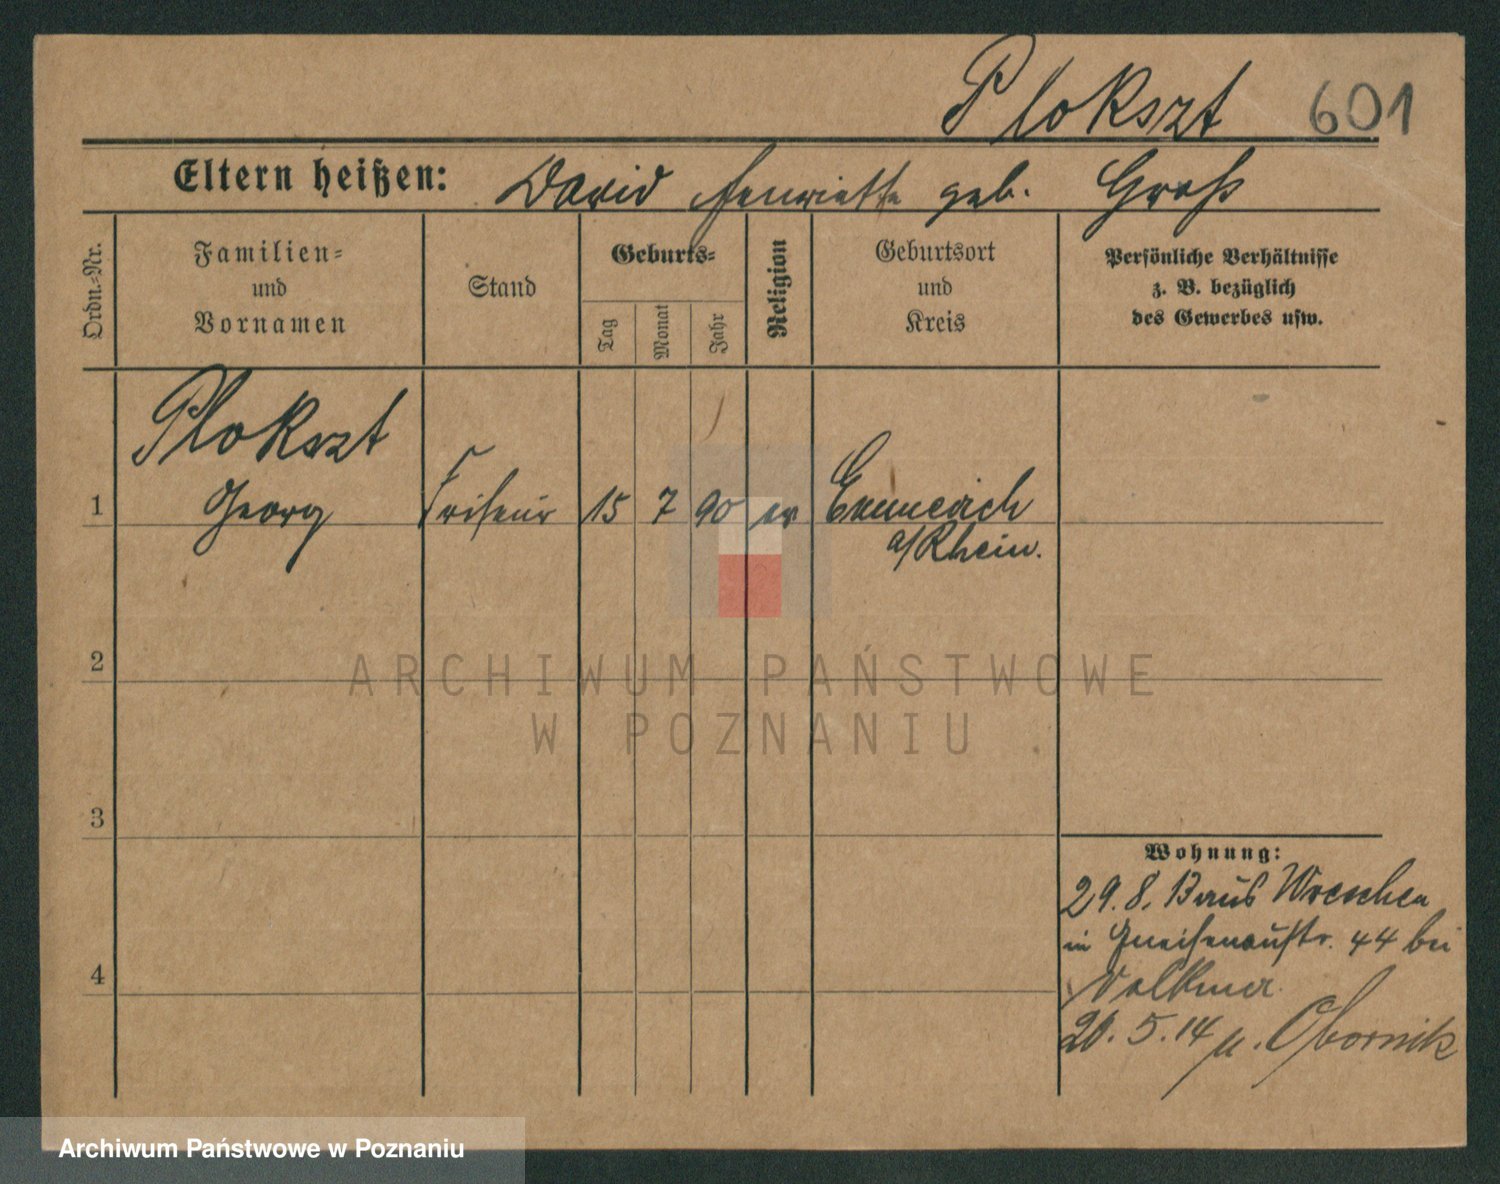 Plokszt 601
Eltern heißen: David Henriette geb. Groß
Ordn.-Nr.
Familien-
und
Vornamen
Stand
Geburts-
Tag
Monat
Jahr
Religion
Geburtsort
und
Kreis
Persönliche Verhältnisse
z. B. bezüglich
des Gewerbes usw.
Plokszt
1 Georg Friseur 15 7 90 ev
a/Rhein.
2
3
4
Wohnung:
29.8.13 aus Wreschen
in Gneisenaustr. 44 bei
Volkmer
20.5.14 n. Obornik
ARCHIWUM PAŃSTWOWE
W POZNANIU
Archiwum Państwowe w Poznaniu